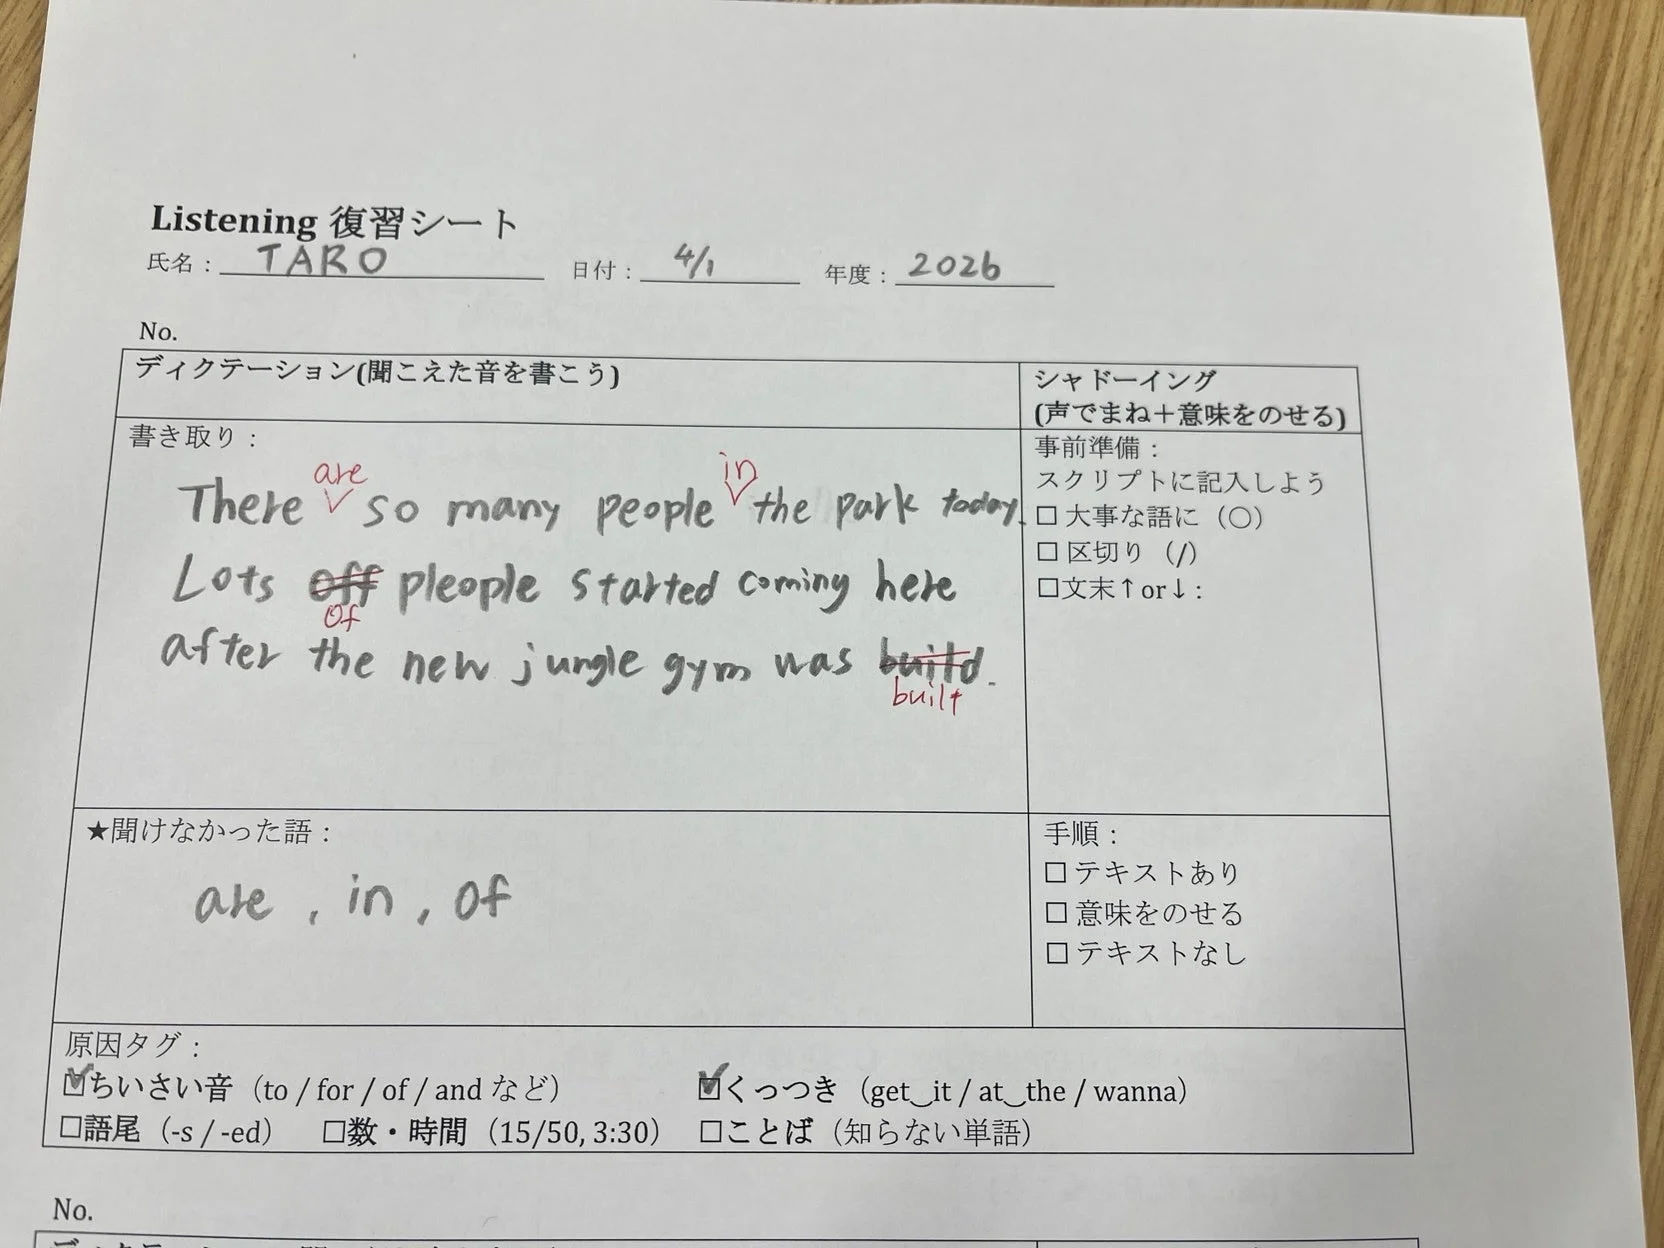 Listening 復習シート
氏名：TARO 日付：4/1 年度：2026
No.
ディクテーション(聞こえた音を書こう)
書き取り：
are in
There so many people the park today.
Lots off pleople started coming here
of
after the new jungle gym was build.
built
★聞けなかった語：
are , in , of
シャドーイング
(声でまね＋意味をのせる)
事前準備：
スクリプトに記入しよう
☐ 大事な語に（〇）
☐ 区切り（/）
☐文末↑or↓:
手順：
☐ テキストあり
☐ 意味をのせる
☐ テキストなし
原因タグ：
☑ちいさい音（to / for / of / and など） ☑くっつき（get‿it / at‿the / wanna）
☐語尾（-s / -ed） ☐数・時間（15/50, 3:30） ☐ことば（知らない単語）
No.